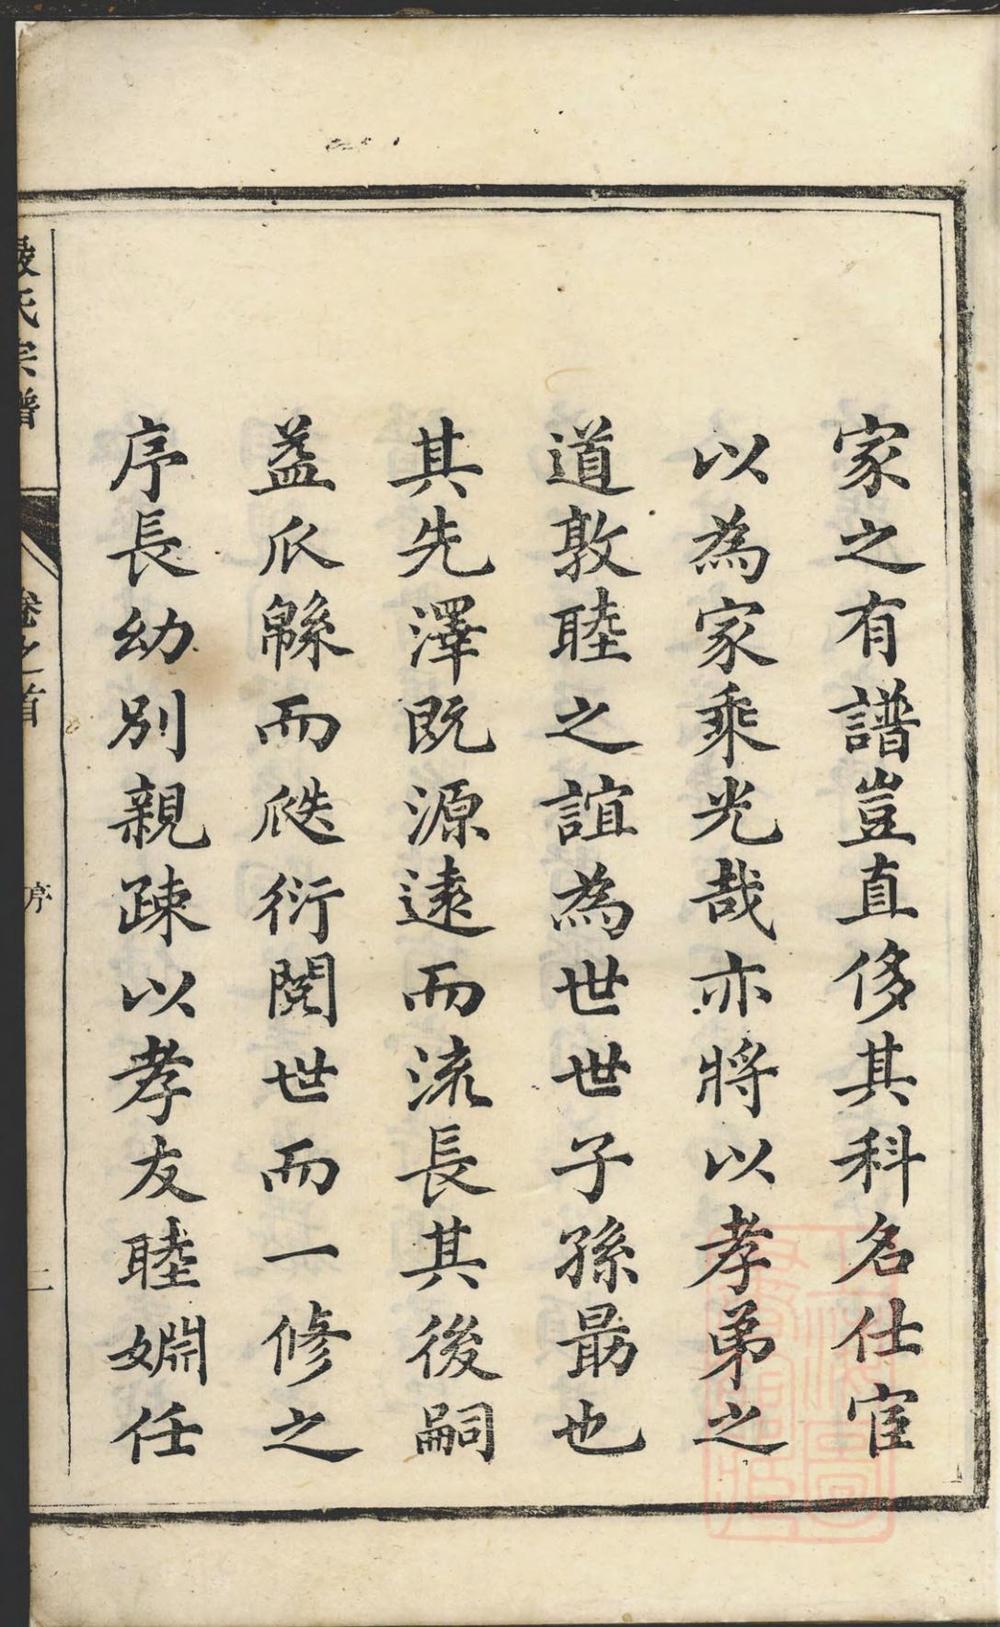 家之有譜豈直侈其科名仕宦
以為家乘光哉亦將以孝弟之
道敦睦之誼為世世子孫勗也
其先澤既源遠而流長其後嗣
益瓜緜而瓞衍閱世而一修之
序長幼別親疎以孝友睦婣任
氏宗譜
卷之首
序
二